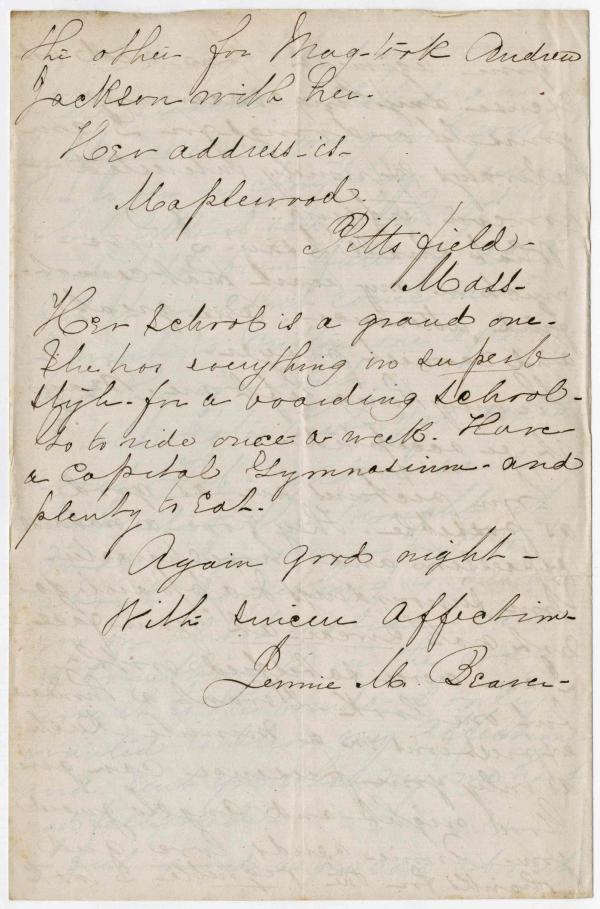 the other for Mag- took Andrew
Jackson with her.
Her address- is-
Maplewood.
Pittsfield-
Mass-
Her School is a grand one-
She has everything in superb
style- for a boarding School-
Go to ride once a week. Have
a Capital Gymnasium- and
plenty to Eat.
Again good night-
With sincere affection-
Jennie M. Beaver-